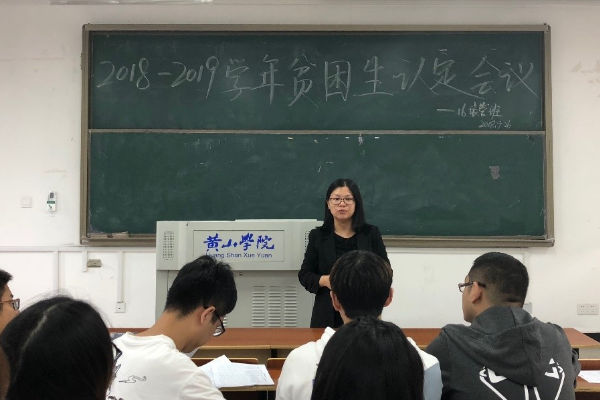 2018-2019学年贫困生认定会议
黄山学院
Huang Shan Xue Yuan